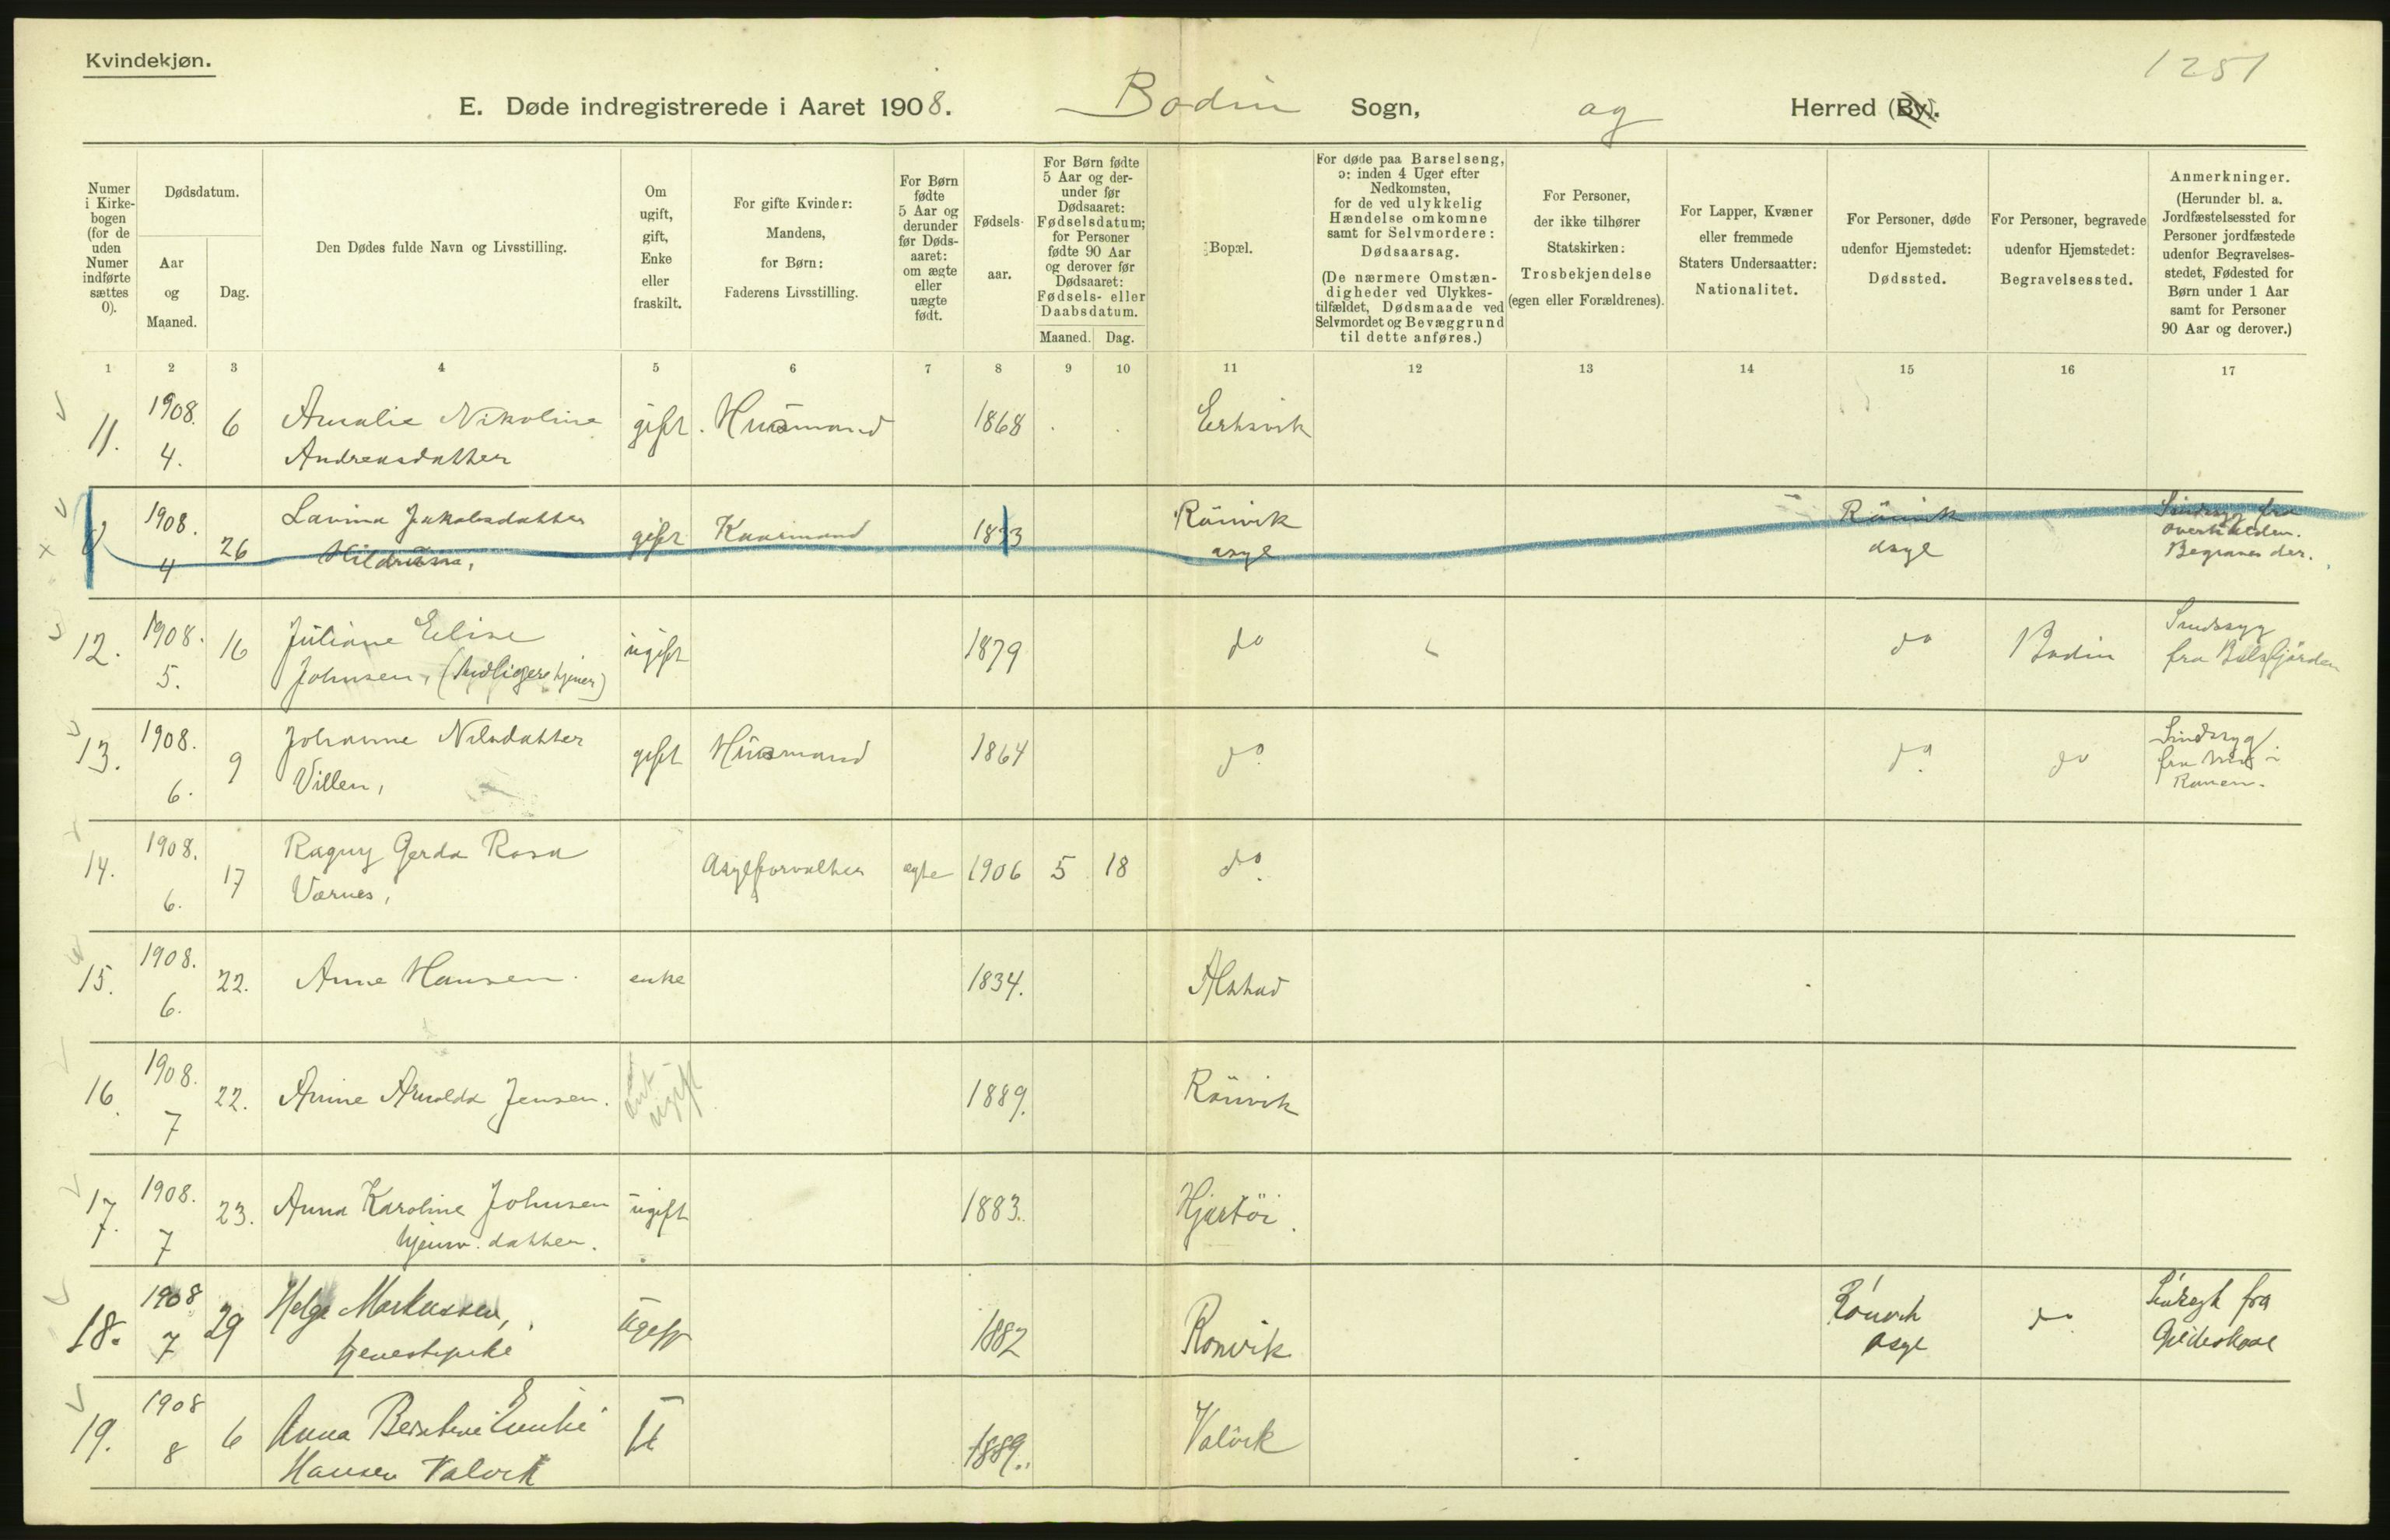 Kvindekjøn.
1251
E. Døde indregistrerede i Aaret 1908. Bodin Sogn, og Herred (By).
Numer
i Kirke-
bogen
(for de
uden
Numer
indførte
sættes
0).
Dødsdatum.
Aar
og
Maaned.
Dag.
Den Dødes fulde Navn og Livsstilling.
Om
ugift,
gift,
Enke
eller
fraskilt.
For gifte Kvinder:
Mandens,
for Børn:
Faderens Livsstilling.
For Børn
fødte
5 Aar og
derunder
før Døds-
aaret:
om ægte
eller
uægte
født.
Fødsels-
aar.
For Børn fødte
5 Aar og der-
under før
Dødsaaret:
Fødselsdatum;
for Personer
fødte 90 Aar
og derover før
Dødsaaret:
Fødsels- eller
Daabsdatum.
Maaned. Dag.
Bopæl.
For døde paa Barselseng,
ɔ: inden 4 Uger efter
Nedkomsten,
for de ved ulykkelig
Hændelse omkomne
samt for Selvmordere:
Dødsaarsag.
(De nærmere Omstæn-
digheder ved Ulykkes-
tilfældet, Dødsmaade ved
Selvmordet og Bevæggrund
til dette anføres.)
For Personer,
der ikke tilhører
Statskirken:
Trosbekjendelse
(egen eller Forældrenes).
For Lapper, Kvæner
eller fremmede
Staters Undersaatter:
Nationalitet.
For Personer, døde
udenfor Hjemstedet:
Dødssted.
For Personer, begravede
udenfor Hjemstedet:
Begravelsessted.
Anmerkninger.
(Herunder bl. a.
Jordfæstelsessted for
Personer jordfæstede
udenfor Begravelses-
stedet, Fødested for
Børn under 1 Aar
samt for Personer
90 Aar og derover.)
1 2 3 4 5 6 7 8 9 10 11 12 13 14 15 16 17
11. 1908. 6 Amalie Nikoline gift. Husmand 1868
4. Andreasdatter
1908. 26 Lavina Jakobsdatter gift 18 3 Rönvik Rönvik
4 asyl asyl
Begraves der.
12. 1908. 16 Juliane Elise ugift 1879 do do Bodin Sindssyg
5. Johnsen, fra Balsfjorden
13. 1908. 9 Johanne Nilsdatter gift Husmand 1864 do. do. do Sindssyg
6. Villen, fra i
Ranen.
14. 1908. 17 Ragny Gerda Rosa Asylforvalter egte 1906 5 18 do.
6. Værnes,
15. 1908. 22. Anne Hansen. enke 1834. Alstad
6.
16. 1908. 22. Anine Arnolda Jensen. ant ugift 1889. Rönvik
7
17. 1908. 23. Anna Karoline Johnsen ugift 1883. Hjartöi.
7 datter.
18. 1908 29 Helge Markussen, ugift 1882 Ronvik Rönvik do fra
7 tjenestepike asyl Gildeskaal
19. 1908 6 Anna U 1889. Valvik
8 Hansen Valvik